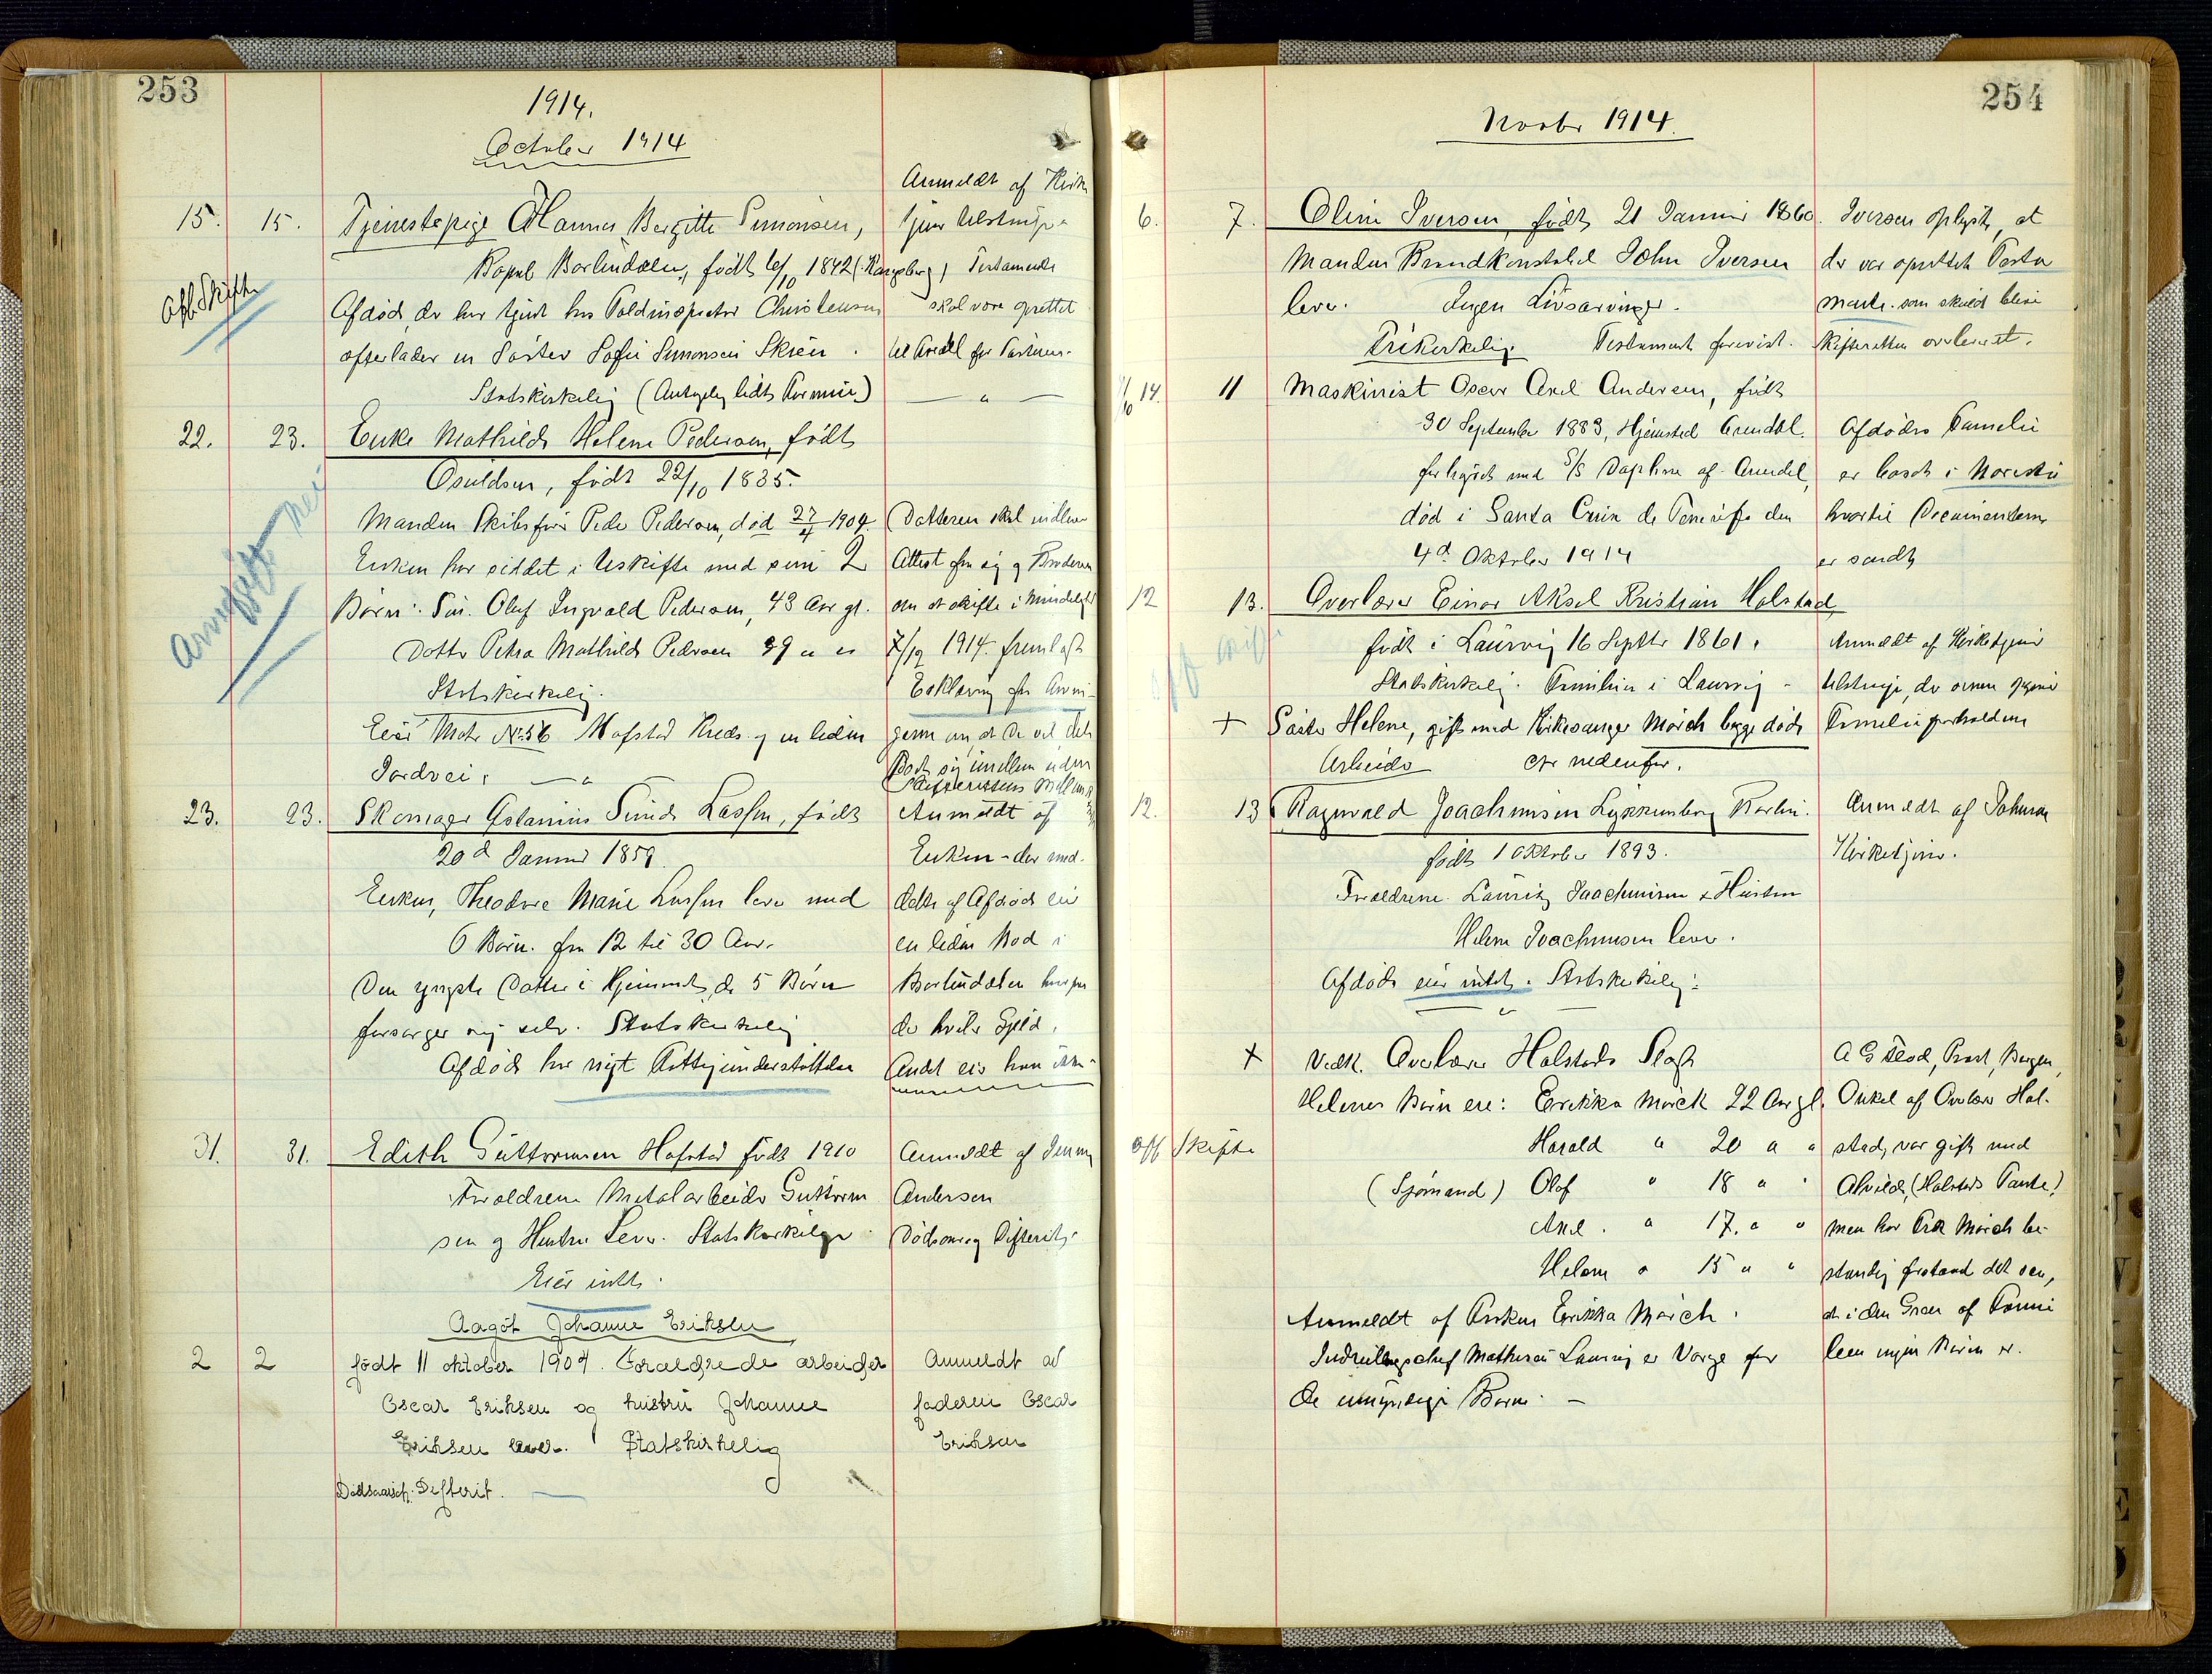 253
1914.
October 1914
Anmeldt af Kirke
15. 15. Tjenestepige Hanna Bergitte Simonsen,
Kopul Barlindalen, født 6/10 1842 (Kongsberg) Testamente
Aff Skifte
Afdøde, der har tjent hos Toldinspektør Christensen skal være oprettet
efterlader en Søster Sofie Simonsen Skien.
Statskirkelig (Antagelig lidt Formue)
22. 23. Enke Mathilde Helene Pedersen, født
Osuldsen, født 22/10 1835.
Arvegift nei
Manden Skibsfører Peder Pedersen, død 27/4 1904 Datteren skal indlevere
Enken har siddet i Uskifte med sine 2 Attest fra sig og Broderen
Børn: Søn. Oluf Ingvald Pedersen, 43 Aar gl. om at skifte i Mindelighed
Datter Petra Mathilde Pedersen 39 " " 7/12 1914 fremlagt
Statskirkelig. Erklæring fra Arvin-
Eier Matr No 56 Hofstad Kreds og en liden gerne om, at de vil dele
Jordvei. — " Boet sig imellem uden
Skifterettens
23. 23. Skomager Gstanius Sunds Lassen, født Anmeldt af
20d Januar 1859. Enken - der med-
Enken, Theodore Marie Lassen lever med delte at Afdøde eier
6 Børn. fra 12 til 30 Aar. en liden Bod i
Den yngste Datter i Hjemmet, de 5 Børn Barlindalen hvorpaa
forsørger sig selv. Statskirkelig der hviler Gjeld.
Afdøde har nydt Fattigunderstøttelse Andet eier han ikke
31. 31. Edith Guttormsen Hofstad født 1910 Anmeldt af Jenny
Forældrene Metalarbeider Guttorm Andersen
sen og Hustru lever. Statskirkelige Dødsaarsag Difterit.
Eier intet.
Aagot Johanne Eriksen
2 2 født 11 oktober 1904. Forældrede arbeider Anmeldt av
Oscar Eriksen og hustru Johanne faderen Oscar
Eriksen lever. Statskirkelig Eriksen
Dødsaarsag: Defterit.
254
Novbr 1914.
6. 7. Oline Iversen, født 21 Januar 1860. Iversen oplyste, at
Manden Brandkonstabel John Iversen der var oprettet Testa
lever. Ingen Livsarvinger. mente. som skuld blive
Frikirkelig. Testament forevist. Skifteretten overleveret.
11/10 14. 11 Maskinist Oscar Axel Andersen, født
30 September 1883, Hjemsted Arendal. Afdødes Familie
forhyret med S/S Daphne af Arendal, er bosat i Moreskä
død i Santa Cruz de Teneriffe den hvortil Documenterne
4d Oktober 1914 er sendt
12 13. Overlærer Einar Aksel Kristian Halstad
født i Laurvig 16 Septbr 1861. Anmeldt af Kirketjener
off skifte
Statskirkelig. Familien i Laurvig - Ulstrup, der
+ Søster Helene, gift med Kirkesanger Mørch begge døde Familieforholdene
Arbeide se nedenfor.
12. 13 Ragnvald Joachimsen Lykkensborg Barlin. Anmeldt af Johnsen
født 1 Oktober 1893. Kirketjener.
Forældrene Lauritz Joachimsen & Hustru
Helene Joachimsen lever.
Afdøde eier intet. Statskirkelig.
+ Vedk. Overlærer Halstads Slægt A G Flood, Prost, Bergen,
Helenes Børn ere: Erikka Mørch 22 Aar gl. Onkel af Overlærer Hal-
off Skifte Harald " 20 " " stad, var gift med
(Sjømand) Olaf " 18 " " Alvilde, (Halstads Tante)
Axel. " 17. " " men har Frk Mørch be-
Helene " 15 " " standig forstaaet det saa,
Anmeldt af Frøken Erikka Mørch. at i den Gren af Fami
Indrulleringschef Mathisen Laurvig er Værge for lien ingen Børn er.
de umyndige Børn. —